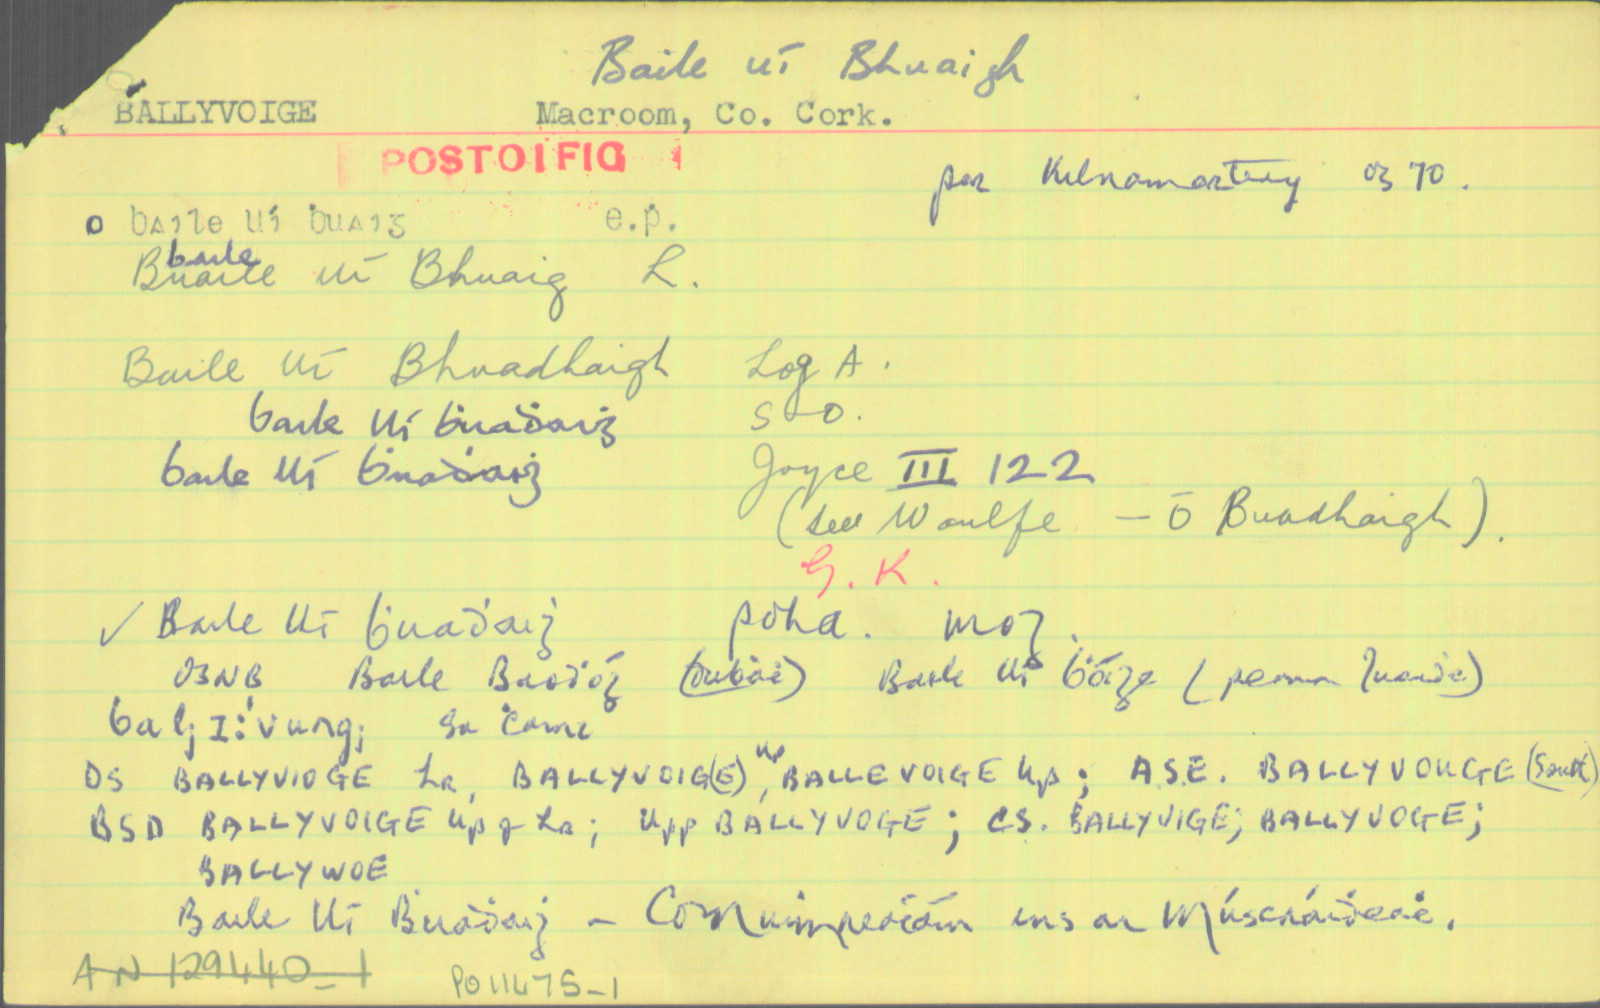 Baile uí Bhuaigh
BALLYVOIGE Macroom, Co. Cork.
POSTOIFIG
par Kilnamartery 03 70.
o baile uí ḃuaiġ e.p.
baile
Buaile uí Bhuaig L.
Baile uí Bhuadhaigh Log A.
baile uí ḃuaḋaiġ S O.
baile uí ḃuaḋaiġ Joyce III 122
(see Woulfe — ó Buadhaigh).
G. K.
✓ Baile uí ḃuaḋaiġ
OSNB Baile Baoḋóg Baile uí ḃóiġe
OS BALLYVIOGE Lr, BALLYVOIG(E) up, BALLEVOIGE Up; A.S.E. BALLYVOUGE (South)
BSD BALLYVOIGE Up & Lr; Upp BALLYVOGE; C.S. BALLYVIGE; BALLYVOGE;
BALLYWOE
Baile Uí Ḃuaḋaiġ – ins an Múscraiḋeaċ.
AN 129440_1 PO11475_1